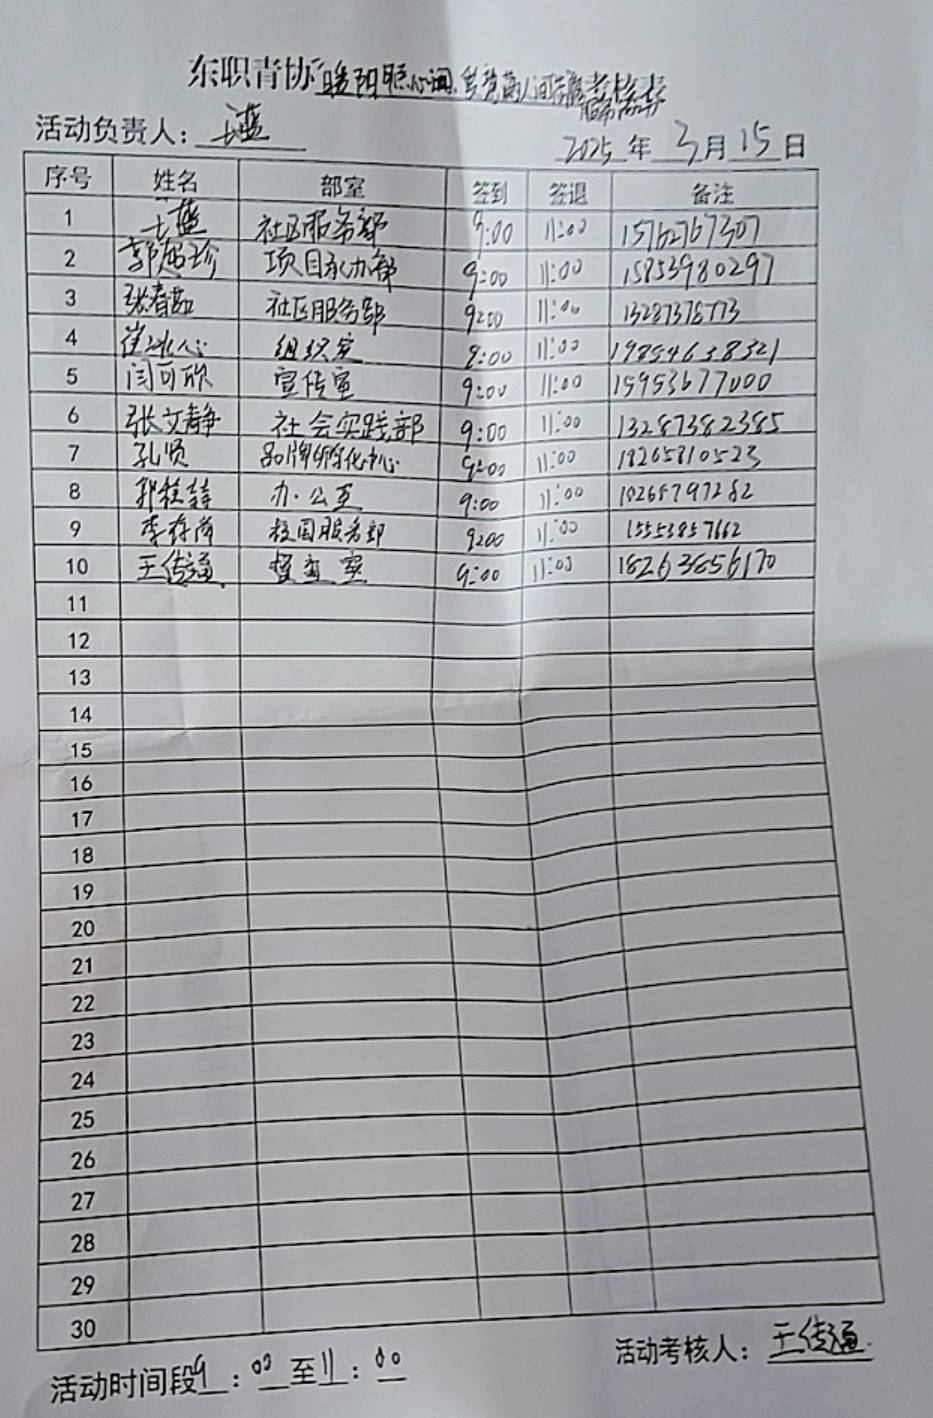 东职青协暖阳照心间,爱筑
活动负责人:
2025年 3月 15日
序号 姓名 部室 签到 签退 备注
1 社区服务部 9:00 11:00 15762767307
2 项目承办部 9:00 11:00 15853980297
3 张春茹 社区服务部 9:00 11:00 13287378773
4 崔冰心 组织室 9:00 11:00 19854638321
5 闫可欣 宣传室 9:00 11:00 15953677000
6 张文静 社会实践部 9:00 11:00 13287382385
7 孔贤 品牌孵化中心 9:00 11:00 18265810523
8 办公室 9:00 11:00 18265797282
9 校园服务部 9:00 11:00 15553857662
10 王传通 督查室 9:00 11:00 18263856170
11
12
13
14
15
16
17
18
19
20
21
22
23
24
25
26
27
28
29
30
活动考核人: 王传通
活动时间段9:00至11:00